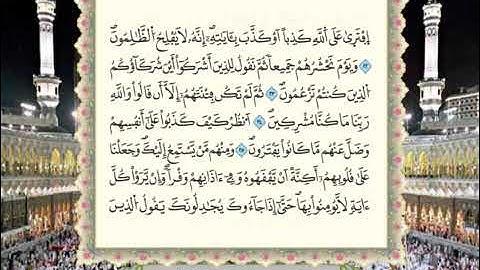 اِفْتَرٰى عَلَى اَللَّهِ كَذِباً اَوْ كَذَّبَ بِـَٔايَٰتِهِۦٓۖ إِنَّهُۥ لَا يُفْلِحُ اُ۬لظَّٰلِمُونَۖ
٢٢ وَيَوْمَ نَحْشُرُهُمْ جَمِيعاٗ ثُمَّ نَقُولُ لِلذِينَ أَشْرَكُوٓاْ أَيْنَ شُرَكَآؤُكُمُ
اُ۬لذِينَ كُنتُمْ تَزْعُمُونَۖ ٢٣ ثُمَّ لَمْ تَكُن فِتْنَتَهُمُۥٓ إِلَّآ أَن قَالُواْ وَاللَّهِ
رَبِّنَا مَا كُنَّا مُشْرِكِينَۖ ٢٤ اَ۟نظُرْ كَيْفَ كَذَبُواْ عَلَىٰٓ أَنفُسِهِمْ
وَضَلَّ عَنْهُم مَّا كَانُواْ يَفْتَرُونَۖ ٢٥ وَمِنْهُم مَّنْ يَّسْتَمِعُ إِلَيْكَۖ وَجَعَلْنَا
عَلَىٰ قُلُوبِهِمُۥٓ أَكِنَّةً أَنْ يَّفْقَهُوهُ وَفِےٓ ءَاذَانِهِمْ وَقْراٗۖ وَإِنْ يَّرَوْاْ كُلَّ
ءَايَةٖ لَّا يُومِنُواْ بِهَاۖ حَتَّىٰٓ إِذَا جَآءُوكَ يُجَٰدِلُونَكَ يَقُولُ اُ۬لذِينَ